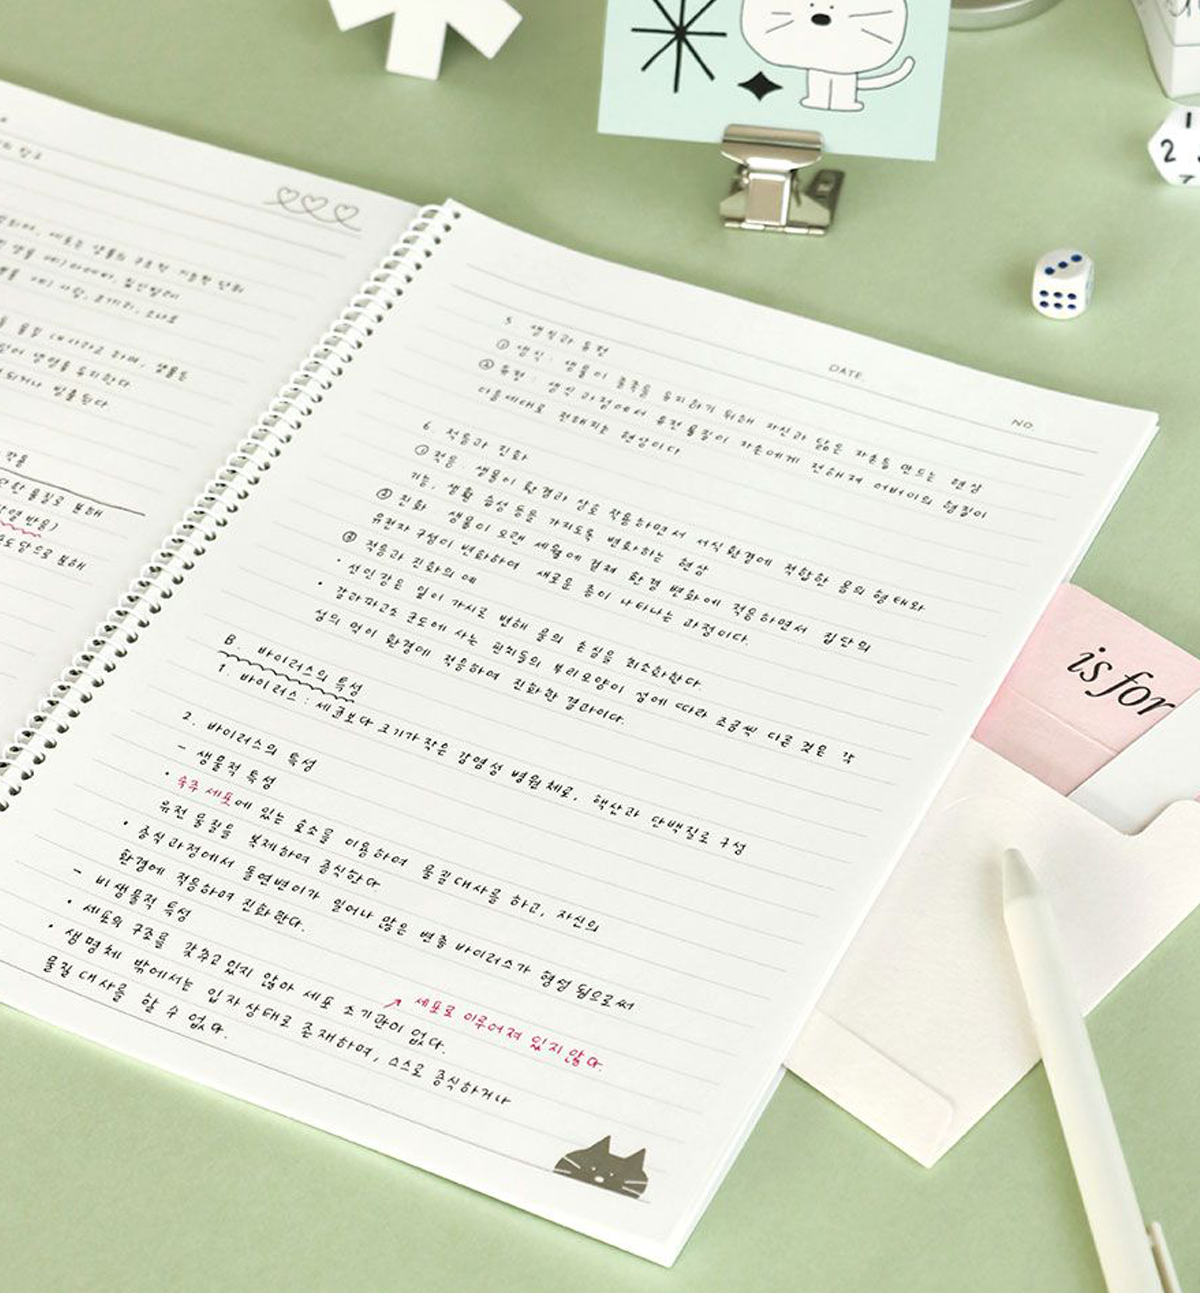 생물 예) 아메바, 짚신벌레
예) 사람, 코끼리, 소나무
물질대사라고 하며, 생물은
생명을 유지한다
되거나 방출된다
작용
물질로 분해
반응)
포도당으로 분해
DATE.
NO
5 생식과 유전
① 생식 : 생물이 종족을 유지하기 위해 자신과 닮은 자손을 만드는 현상
② 유전 : 생식 과정에서 유전물질이 자손에게 전해져 어버이의 형질이
다음세대로 전해지는 현상이다
6 적응과 진화
① 적응 생물이 환경과 상호 작용하면서 서식환경에 적합한 몸의 형태와
기능, 생활 습성 등을 가지도록 변화하는 현상
② 진화 생물이 오랜 세월에 걸쳐 환경 변화에 적응하면서 집단의
유전자 구성이 변화하여 새로운 종이 나타나는 과정이다.
③ 적응과 진화의 예
· 선인장은 잎이 가시로 변해 물의 손실을 최소화한다.
· 갈라파고스 군도에 사는 핀치들의 부리모양이 섬에 따라 조금씩 다른 것은 각
섬의 먹이 환경에 적응하여 진화한 결과이다.
B. 바이러스의 특성
1. 바이러스 : 세균보다 크기가 작은 감염성 병원체로, 핵산과 단백질로 구성
2. 바이러스의 특성
- 생물적 특성
· 숙주 세포에 있는 효소를 이용하여 물질대사를 하고, 자신의
유전 물질을 복제하여 증식한다
· 증식과정에서 돌연변이가 일어나 많은 변종 바이러스가 형성 됨으로써
환경에 적응하며 진화한다.
- 비생물적 특성
↗ 세포로 이루어져 있지 않다.
· 세포의 구조를 갖추고 있지 않아 세포 소기관이 없다.
· 생명체 밖에서는 입자상태로 존재하며, 스스로 증식하거나
물질 대사를 할 수 없다.
is for
1
2